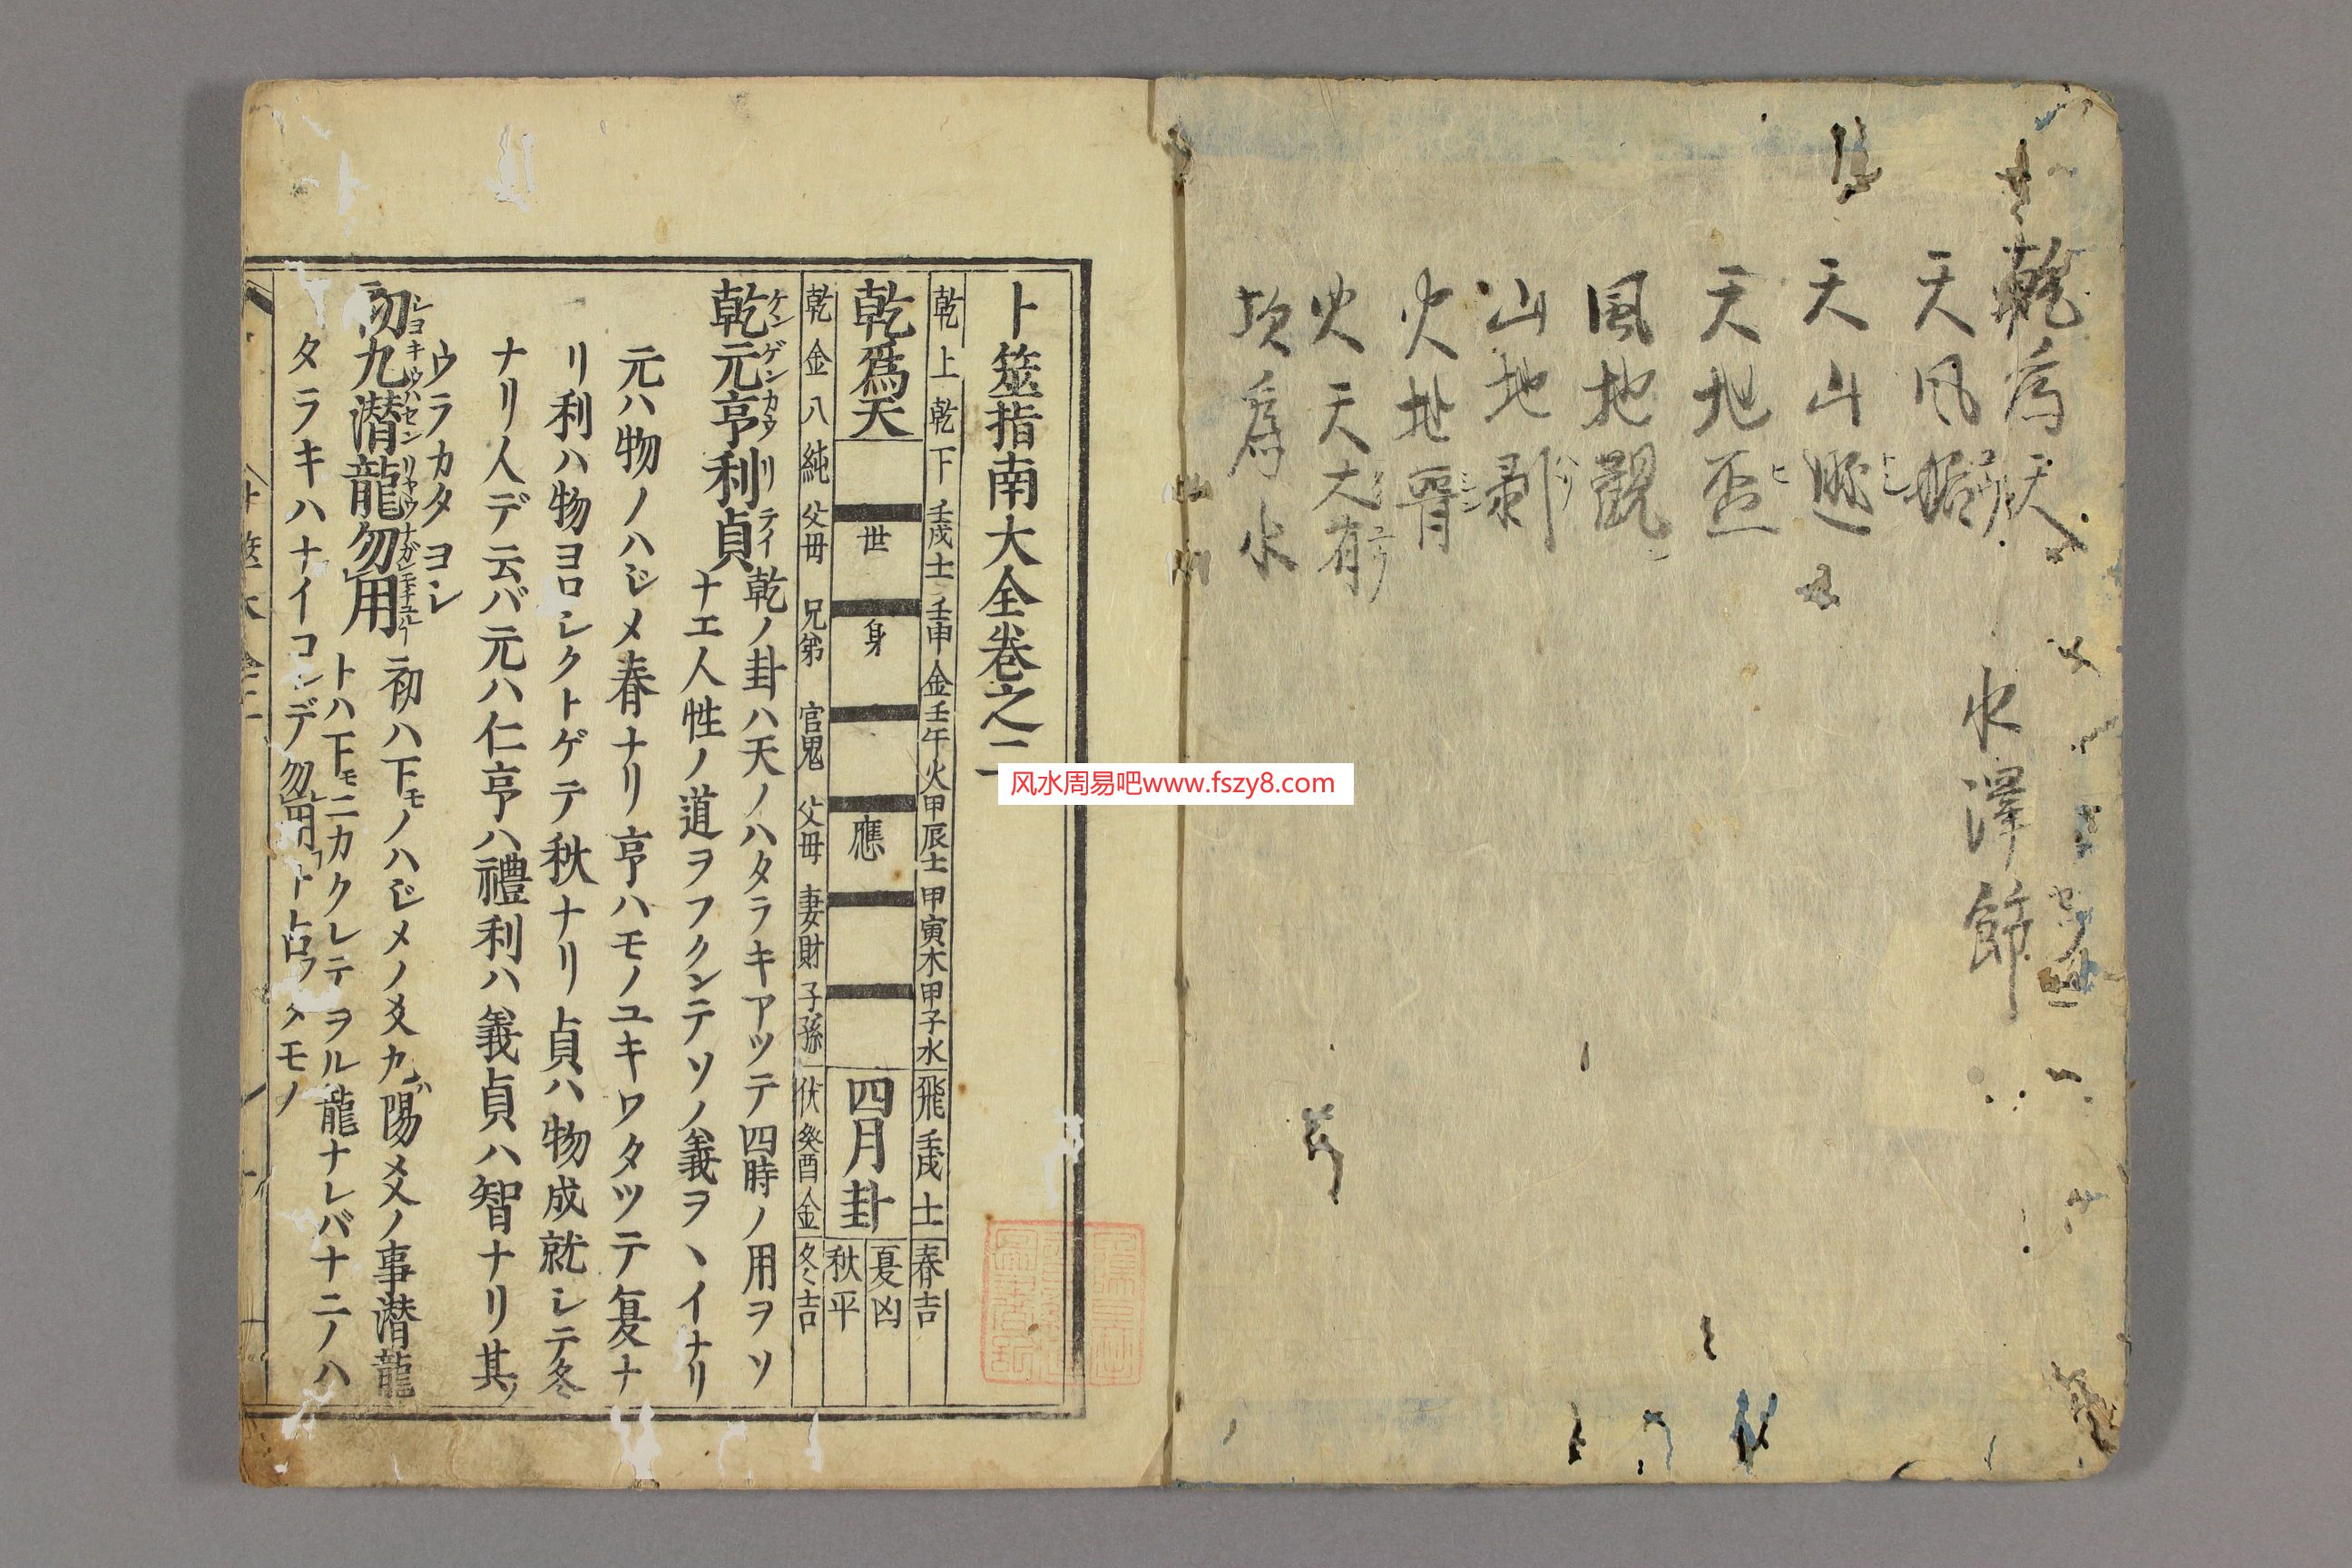 乾爲天
天风姤
天山遯
天地否
風地觀
山地剥
火地晋
火天大有
坎爲水
水澤節
卜筮指南大全卷之二
乾上乾下 壬戌土 壬申金 壬午火 甲辰土 甲寅木 甲子水 飛 壬戌土 春吉
乾爲天 世 身 應 四月卦 夏凶 秋平
乾金八純 父母 兄弟 官鬼 父母 妻財 子孫 伏 癸酉金 冬吉
乾元亨利貞 乾ノ卦ハ天ノハタラキアツテ四時ノ用ヲツ
ケンゲンカウリテイ
ナエ人性ノ道ヲフクンテソノ義ヲヽイナリ
元ハ物ノハジメ春ナリ亨ハモノユキワタツテ夏ナ
リ利ハ物ヨロシクトゲテ秋ナリ貞ハ物成就シテ冬
ナリ人デ云バ元ハ仁亨ハ禮利ハ義貞ハ智ナリ其ツ
ウラカタヨシ
初九潜龍勿用 初ハ下モノハジメノ爻九ハ陽爻ノ事潜龍
トハ下モニカクレテヲル龍ナレバナニノハ
タラキハナイコンデ勿用ト占フタモノ
风水周易吧www.fszy8.com